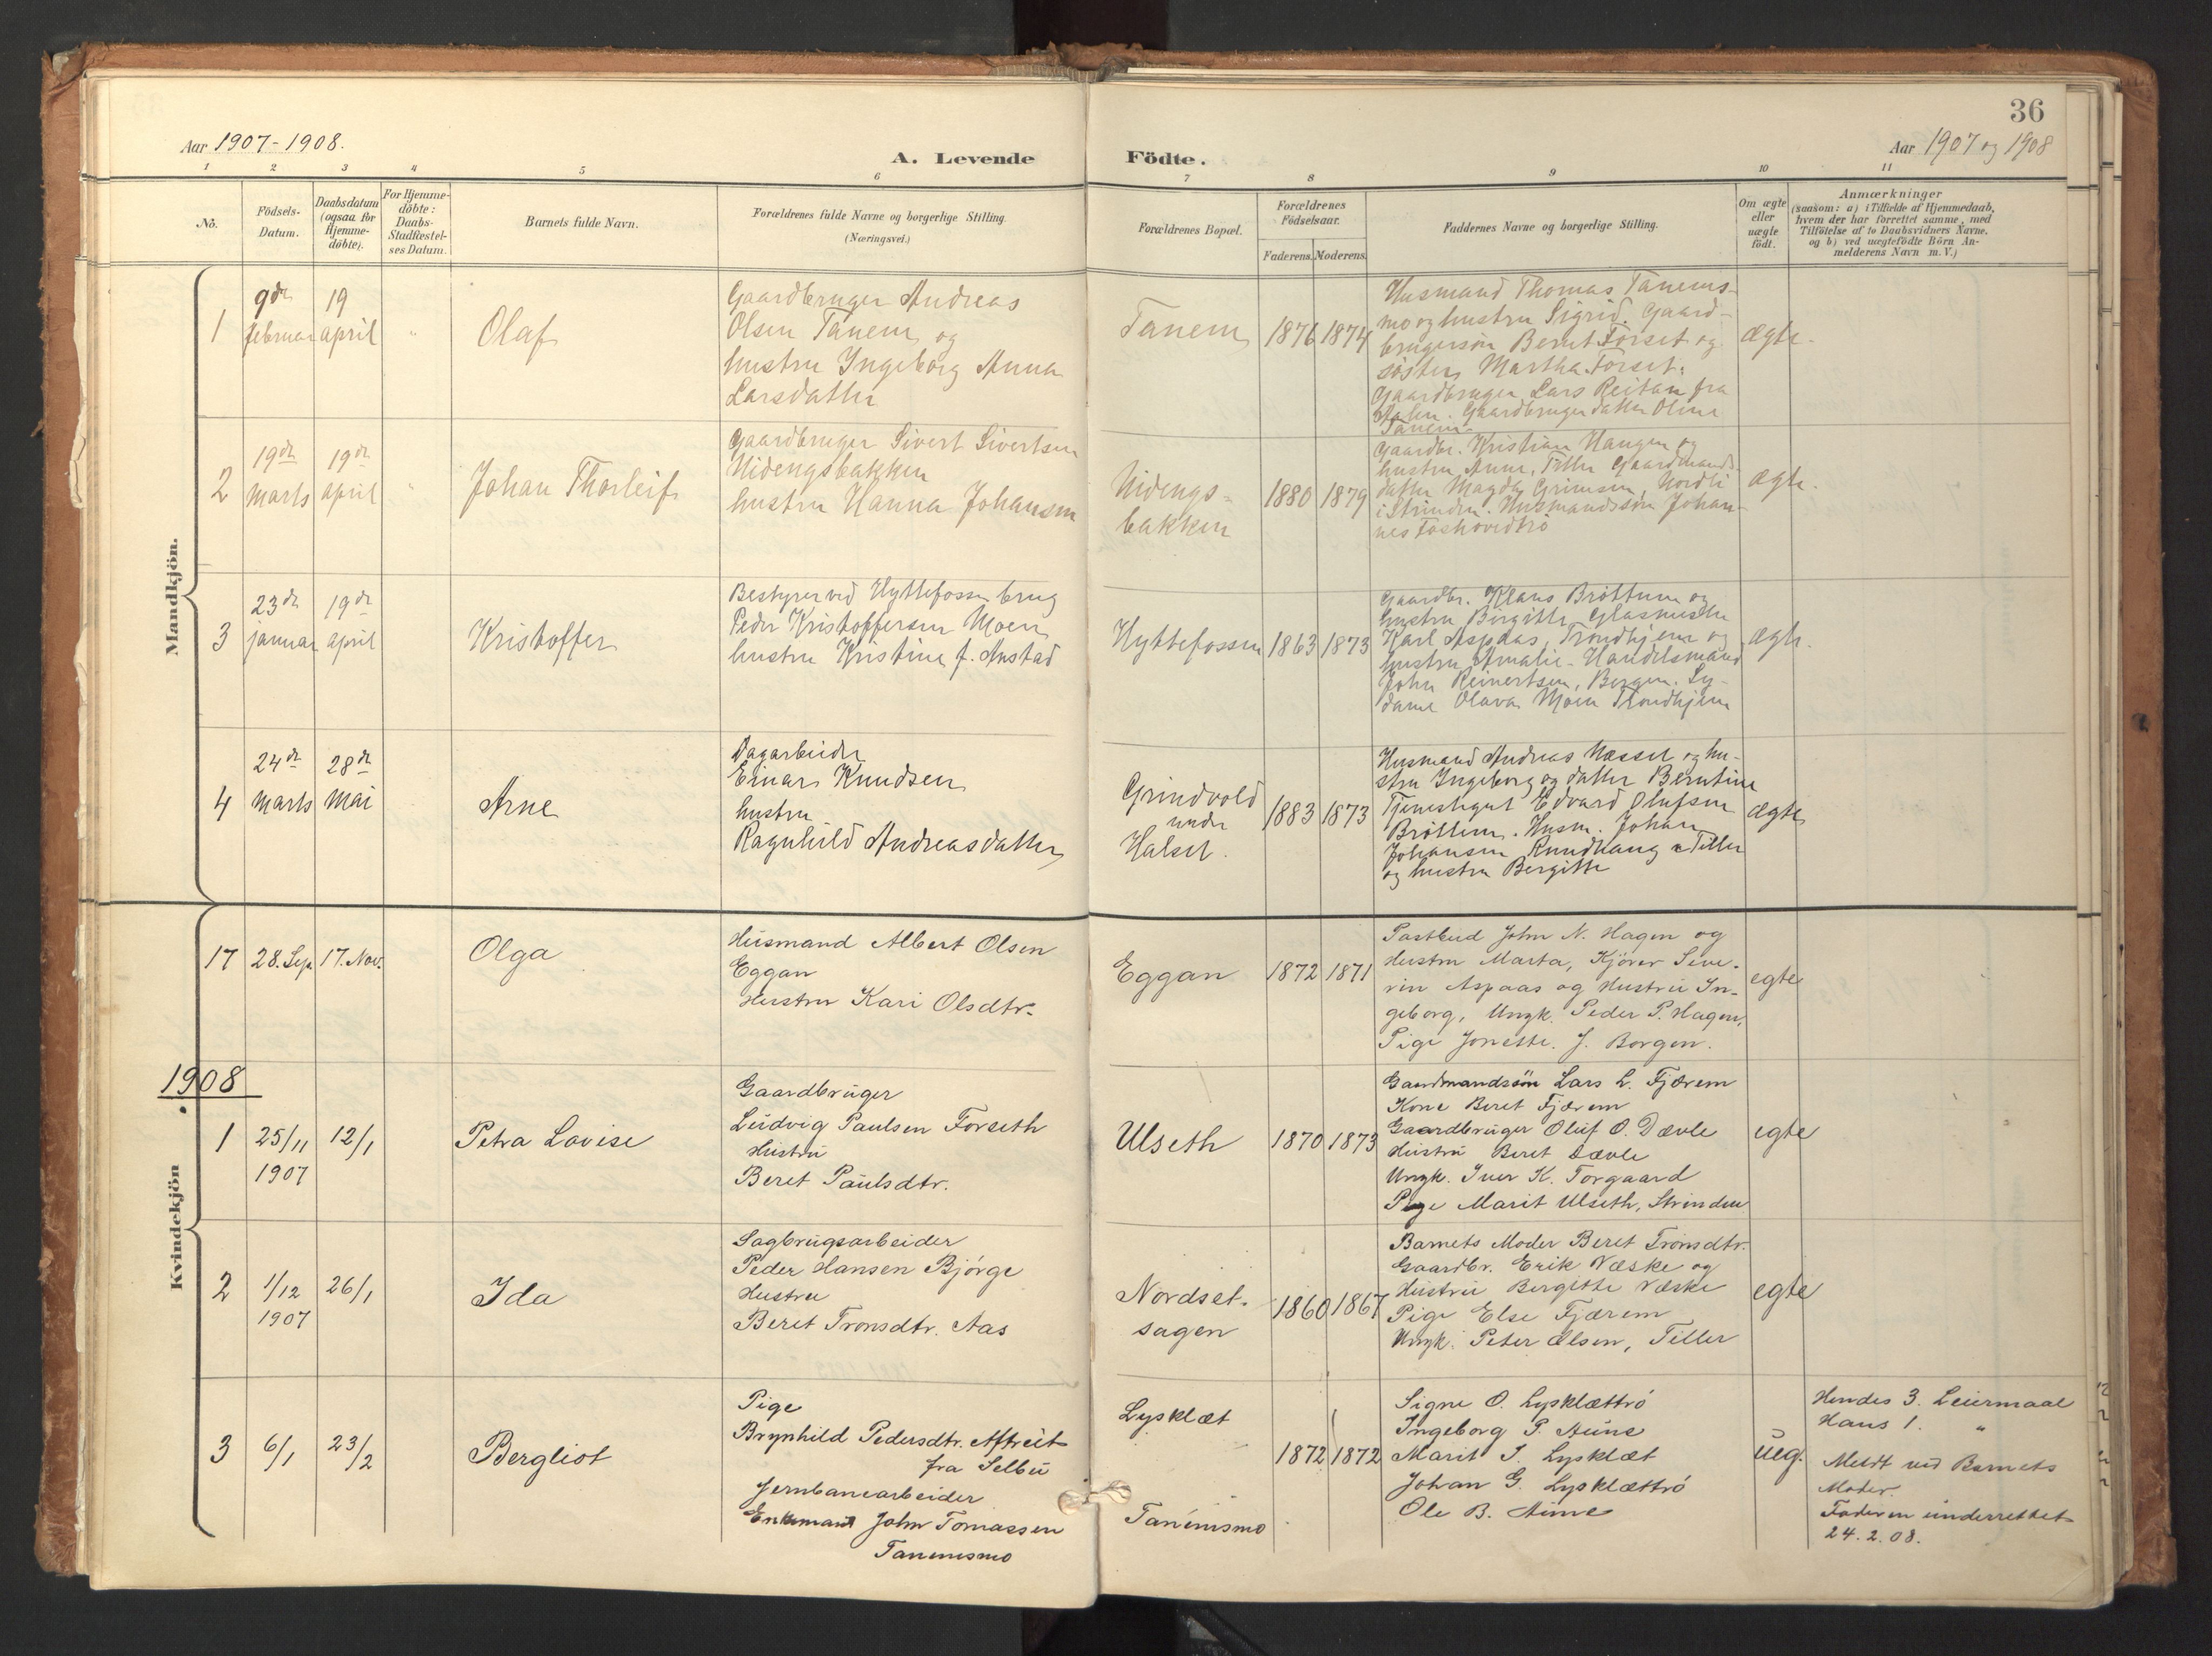 36
Aar 1907-1908.
A. Levende Födte.
Aar 1907 og 1908
1 2 3 4 5 6 7 8 9 10 11
No.
Födsels-
Datum.
Daabsdatum
(ogsaa for
Hjemme-
döbte).
For Hjemme-
döbte:
Daabs-
Stadfæstel-
ses Datum.
Barnets fulde Navn.
Forældrenes fulde Navne og borgerlige Stilling.
(Næringsvei.)
Forældrenes Bopæl.
Forældrenes
Födselsaar.
Faderens. Moderens.
Faddernes Navne og borgerlige Stilling.
Om ægte
eller
uægte
födt.
Anmærkninger
(saasom: a) i Tilfælde af Hjemmedaab,
hvem der har forrettet samme, med
Tilföielse af to Daabsvidners Navne,
og b) ved uægtefödte Börn An-
melderens Navn m. V.)
Mandkjön.
1
9de
februar
19
april
"
Olaf
Gaardbruger Andreas
Olsen Tanem og
hustru Ingeborg Anna
Larsdatter
Tanem
1876
1874
Husmand Thomas Tanems-
mo og hustru Sigrid. Gaard-
brugersön Bernt Forset og
söster Martha Forset.
Gaardbruger Lars Reitan fra
Aalen. Gaardbrugerdatter Oline
Tanem
ægte.
2
19de
Marts
19de
april
"
Johan Thorleif
Gaardbruger Sivert Sivertsen
Nidengsbakken
hustru Hanna Johansen
Nidengs-
bakken
1880
1879
Gaardbr. Kristian Haugen og
hustru Anne, Tiller Gaardmands-
datter Magda Grimsen, Nordli
i Strinden. Husmandssön Johan-
nes Foshovedtrö
ægte.
3
23de
januar
19de
april
Kristoffer
Bestyrer ved Hyttefossen brug
Peder Kristoffersen Moen
hustru Kristine f. Anstad
Hyttefossen
1863
1873
Gaardbr. Klaus Bröttum og
hustru Birgitte Glasmester
Karl Aspaas, Trondhjem og
hustru Amalie - Handelsmand
John Reinertsen, Bergen. Sy-
dame Olava Moen Trondhjem
ægte.
4
24de
Marts
28de
Mai
Arne
Dagarbeider
Einar Knudsen
hustru
Ragnhild Andreasdatter
Grindvold
under
Halset.
1883
1873
Husmand Andreas Næsset og hu-
stru Ingeborg og datter Berntine
Tjenestegut Edvard Olufsen
Bröttem. Husm. Johan
Johansen Rundhaug Tiller
og hustru Bergitte
ægte
Kvindekjön
17
28. Sep.
17. Nov.
Olga
Husmand Albert Olsen
Eggan
Hustru Kari Olsdtr.
Eggan
1872
1871
Postbud John N. Hagen og
Hustru Marta, Kjörer Seve-
rin Aspaas og Hustru In-
geborg, Ungk. Peder P. Hagen,
Pige Jonette J. Borgen.
egte
1908
1
25/11
1907
12/1
Petra Lovise
Gaardbruger
Ludvig Paulsen Forseth
Hustru
Beret Paulsdtr.
Ulseth
1870
1873
Gaardmandssön Lars L. Fjærem
Kone Beret Fjærem
Gaardbruger Oluf O. Dævle
Hustru Beret Dævle
Ungk. Iver K. Torgaard
Pige Marit Ulseth, Strinden
egte
2
1/12
1907
26/1
Ida
Sagbrugsarbeider
Peder Hansen Bjørge
Hustru
Beret Tronsdtr. Aas
Nordset-
sagen
1860
1867
Barnets Moder Beret Tronsdtr.
Gaardbr. Erik Væske og
Hustru Bergitte Væske
Pige Else Fjærem
Ungk. Peter Olsen, Tiller
egte
3
6/1
23/2
Bergliot
Pige
Brynhild Pedersdtr. Aftreit
fra Selbu
Jernbanearbeider
Enkemand John Tomassen
Tanemsmo
Lysklæt
Tanemsmo
1872
1872
Signe O. Lysklættrö
Ingeborg P. Aune
Marit J. Lysklæt
Johan G. Lysklættrö
Ole B. Aune
ueg.
Hendes 3. Leiermaal
Hans 1. "
Meldt ved Barnets
Moder.
Faderen underrettet
24.2.08.